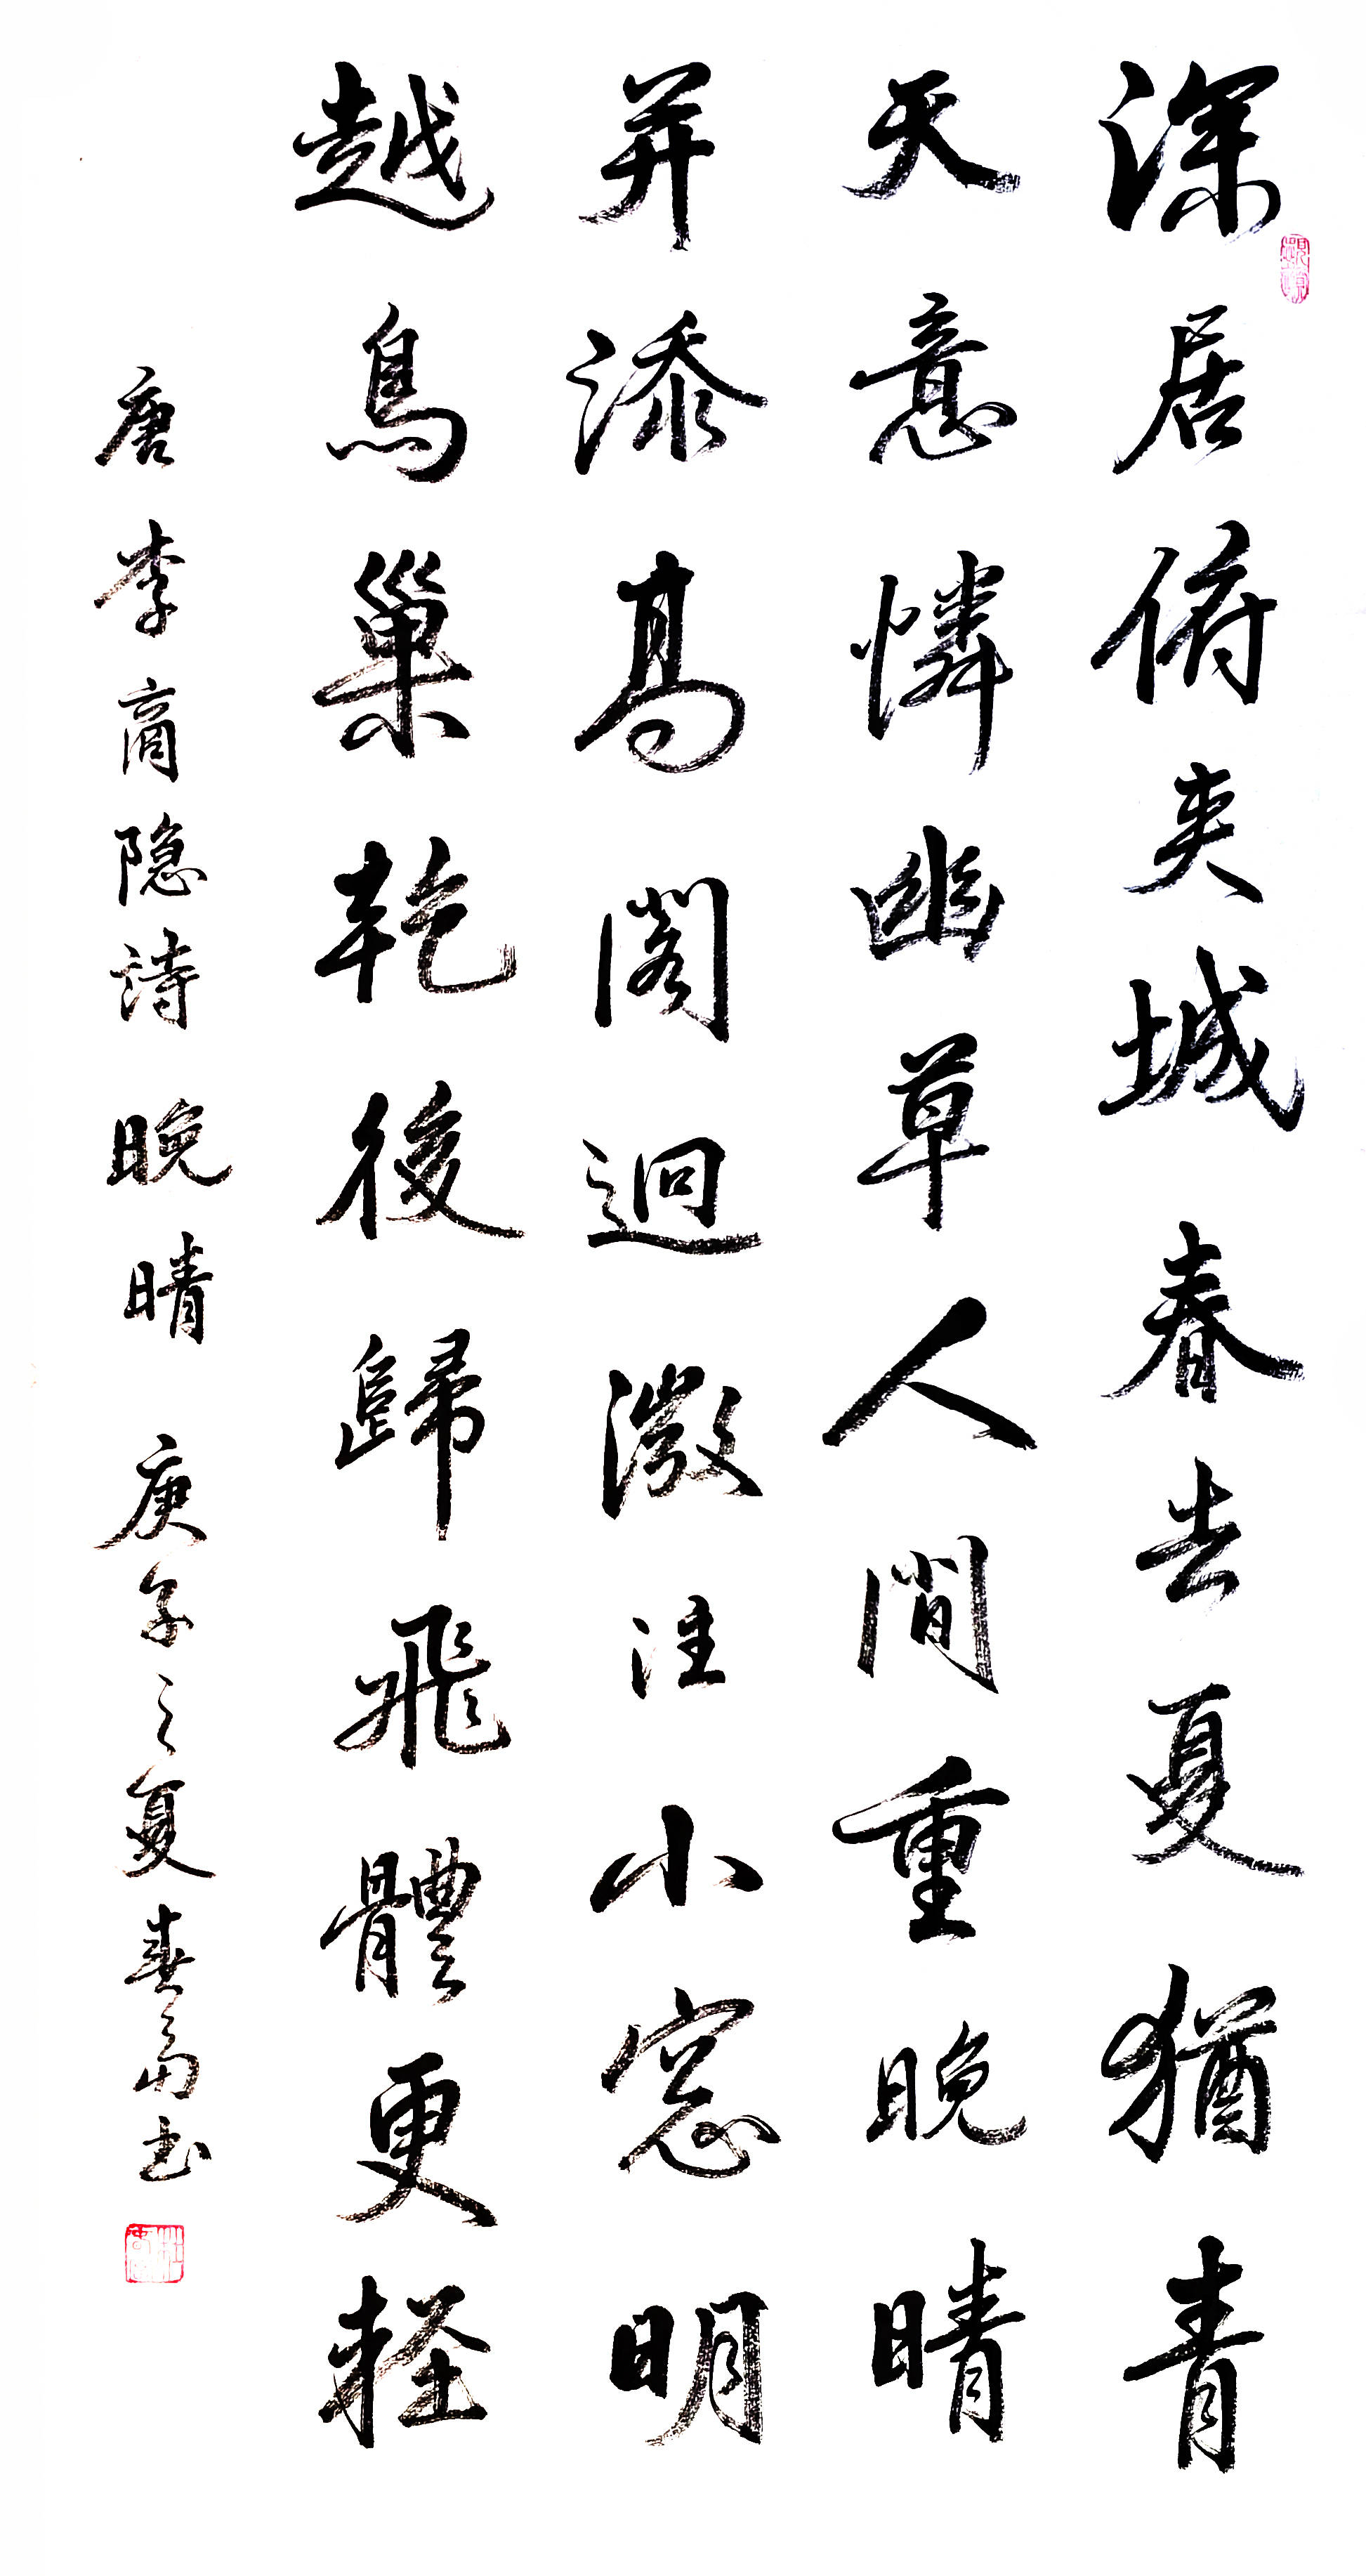 深居俯夹城春去夏猶青
天意憐幽草人間重晚晴
并添高閣迥微注小窓明
越鳥巢乾後歸飛體更軽
唐李商隐詩晚晴 庚子之夏春富书